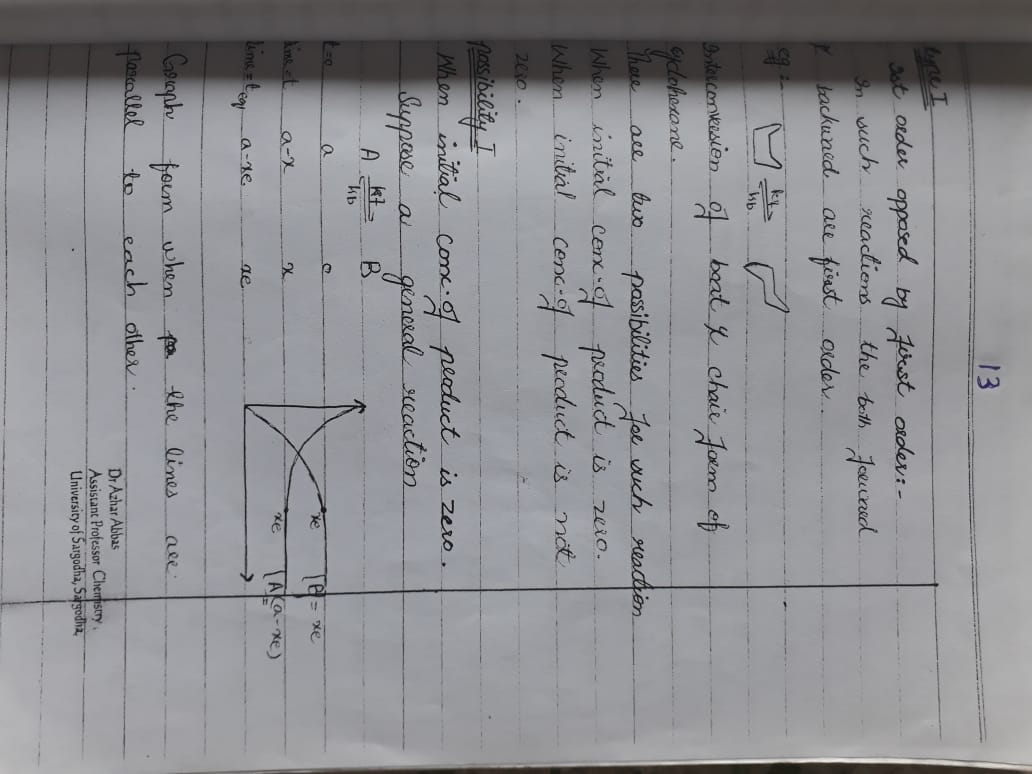 13
type I
1st order opposed by first order:-
In such reactions the both forward
& backward are first order.
eg:-
kf
kb
Interconversion of boat & chair form of
cyclohexane.
There are two possibilities for such reaction
When initial conc. of product is zero.
When initial conc. of product is not
zero.
Possibility I
When initial conc. of product is zero.
Suppose a general reaction
A kf B
kb
t=0 a 0
time=t a-x x
time=teq a-xe xe
xe [B] = xe
xe [A] = (a-xe)
Graph form when the lines are
parallel to each other.
Dr Azhar Abbas
Assistant Professor Chemistry,
University of Sargodha, Sargodha,